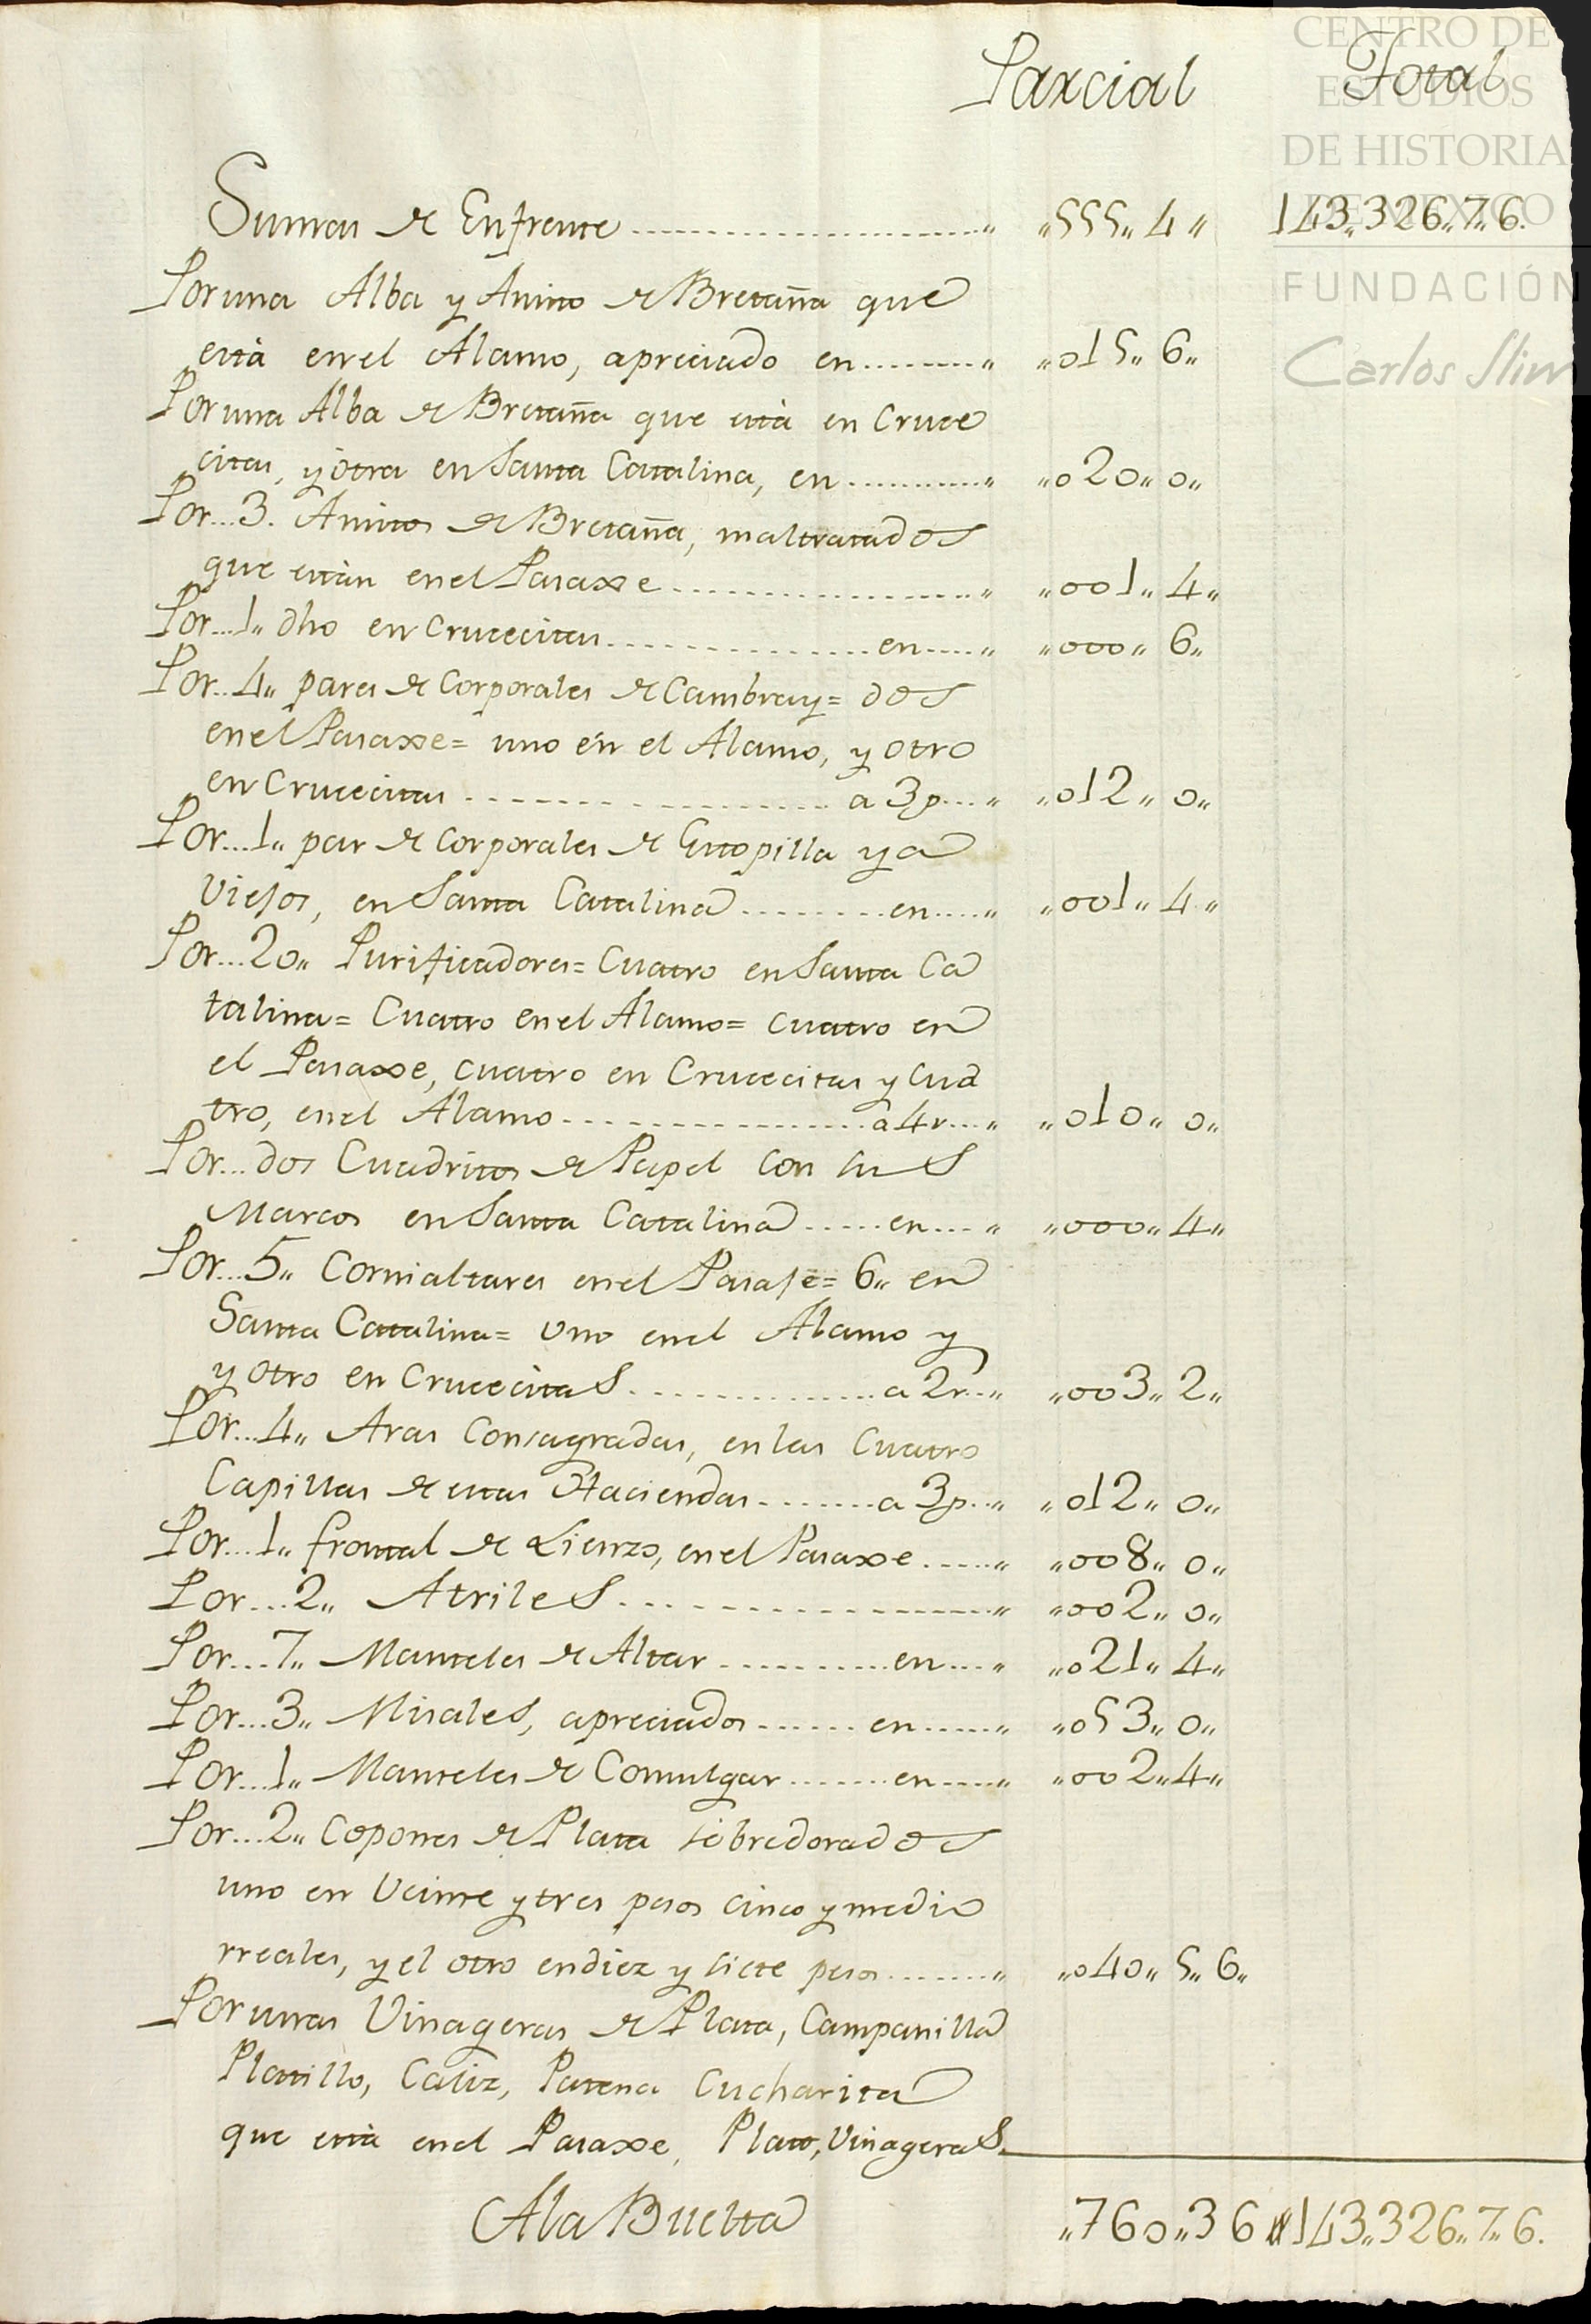 CENTRO DE
ESTUDIOS
DE HISTORIA
DE MEXICO
FUNDACIÓN
Carlos Slim
Parcial Total
Sumas de Enfrente ........................ „ „555„ 4 „ 143„326„7„6.
Por una Alba y Amito de Bretaña que
està en el Alamo, apreciado en ......... „ „015„ 6„
Por una Alba de Bretaña que està en Cruce
citas, y otra en Santa Catalina, en ............ „ „020„ 0„
Por...3. Amitos de Bretaña, maltratados
que estàn en el Paraxe .................... „ „001„ 4„
Por...1„ dho en Crucecitas ................ en ..... „ „000„ 6„
Por...4„ pares de Corporales de Cambray= dos
en el Paraxe= uno en el Alamo, y otro
en Crucecitas .................... a 3p.... „ „012„ 0„
Por...1„ par de Corporales de Estopilla ya
Viejos, en Santa Catalina ......... en ..... „ „001„ 4„
Por...20„ Purificadores= Cuatro en Santa Ca
talina= Cuatro en el Alamo= cuatro en
el Paraxe, cuatro en Crucecitas y cua
tro, en el Alamo ................ a 4r.... „ „010„ 0„
Por... dos Cuadritos de Papel con sus
Marcos en Santa Catalina ..... en .... „ „000„ 4„
Por...5„ Cornialtares en el Paraje= 6„ en
Santa Catalina= Uno en el Alamo y
y otro en Crucecitas .............. a 2r... „ „003„ 2„
Por...4„ Aras Consagradas, en las Cuatro
Capillas de estas Haciendas ........ a 3p... „ „012„ 0„
Por...1„ frontal de Lienzo, en el Paraxe ..... „ „008„ 0„
Por...2„ Atriles .................... „ „002„ 0„
Por...7„ Manteles de Altar ........... en .... „ „021„ 4„
Por...3„ Misales, apreciados ...... en ...... „ „053„ 0„
Por...1„ Manteles de Comulgar ....... en ..... „ „002„4„
Por...2„ Copones de Plata sobredorados
uno en Veinte y tres pesos cinco y medio
rreales, y el otro en diez y siete pesos ....... „ „040„ 5„ 6„
Por unas Vinageras de Plata, Campanilla
Platillo, Caliz, Patena Cucharita
que està en el Paraxe, Plato, Vinageras
A la Buelta „760„3 6 143„326„7„6.